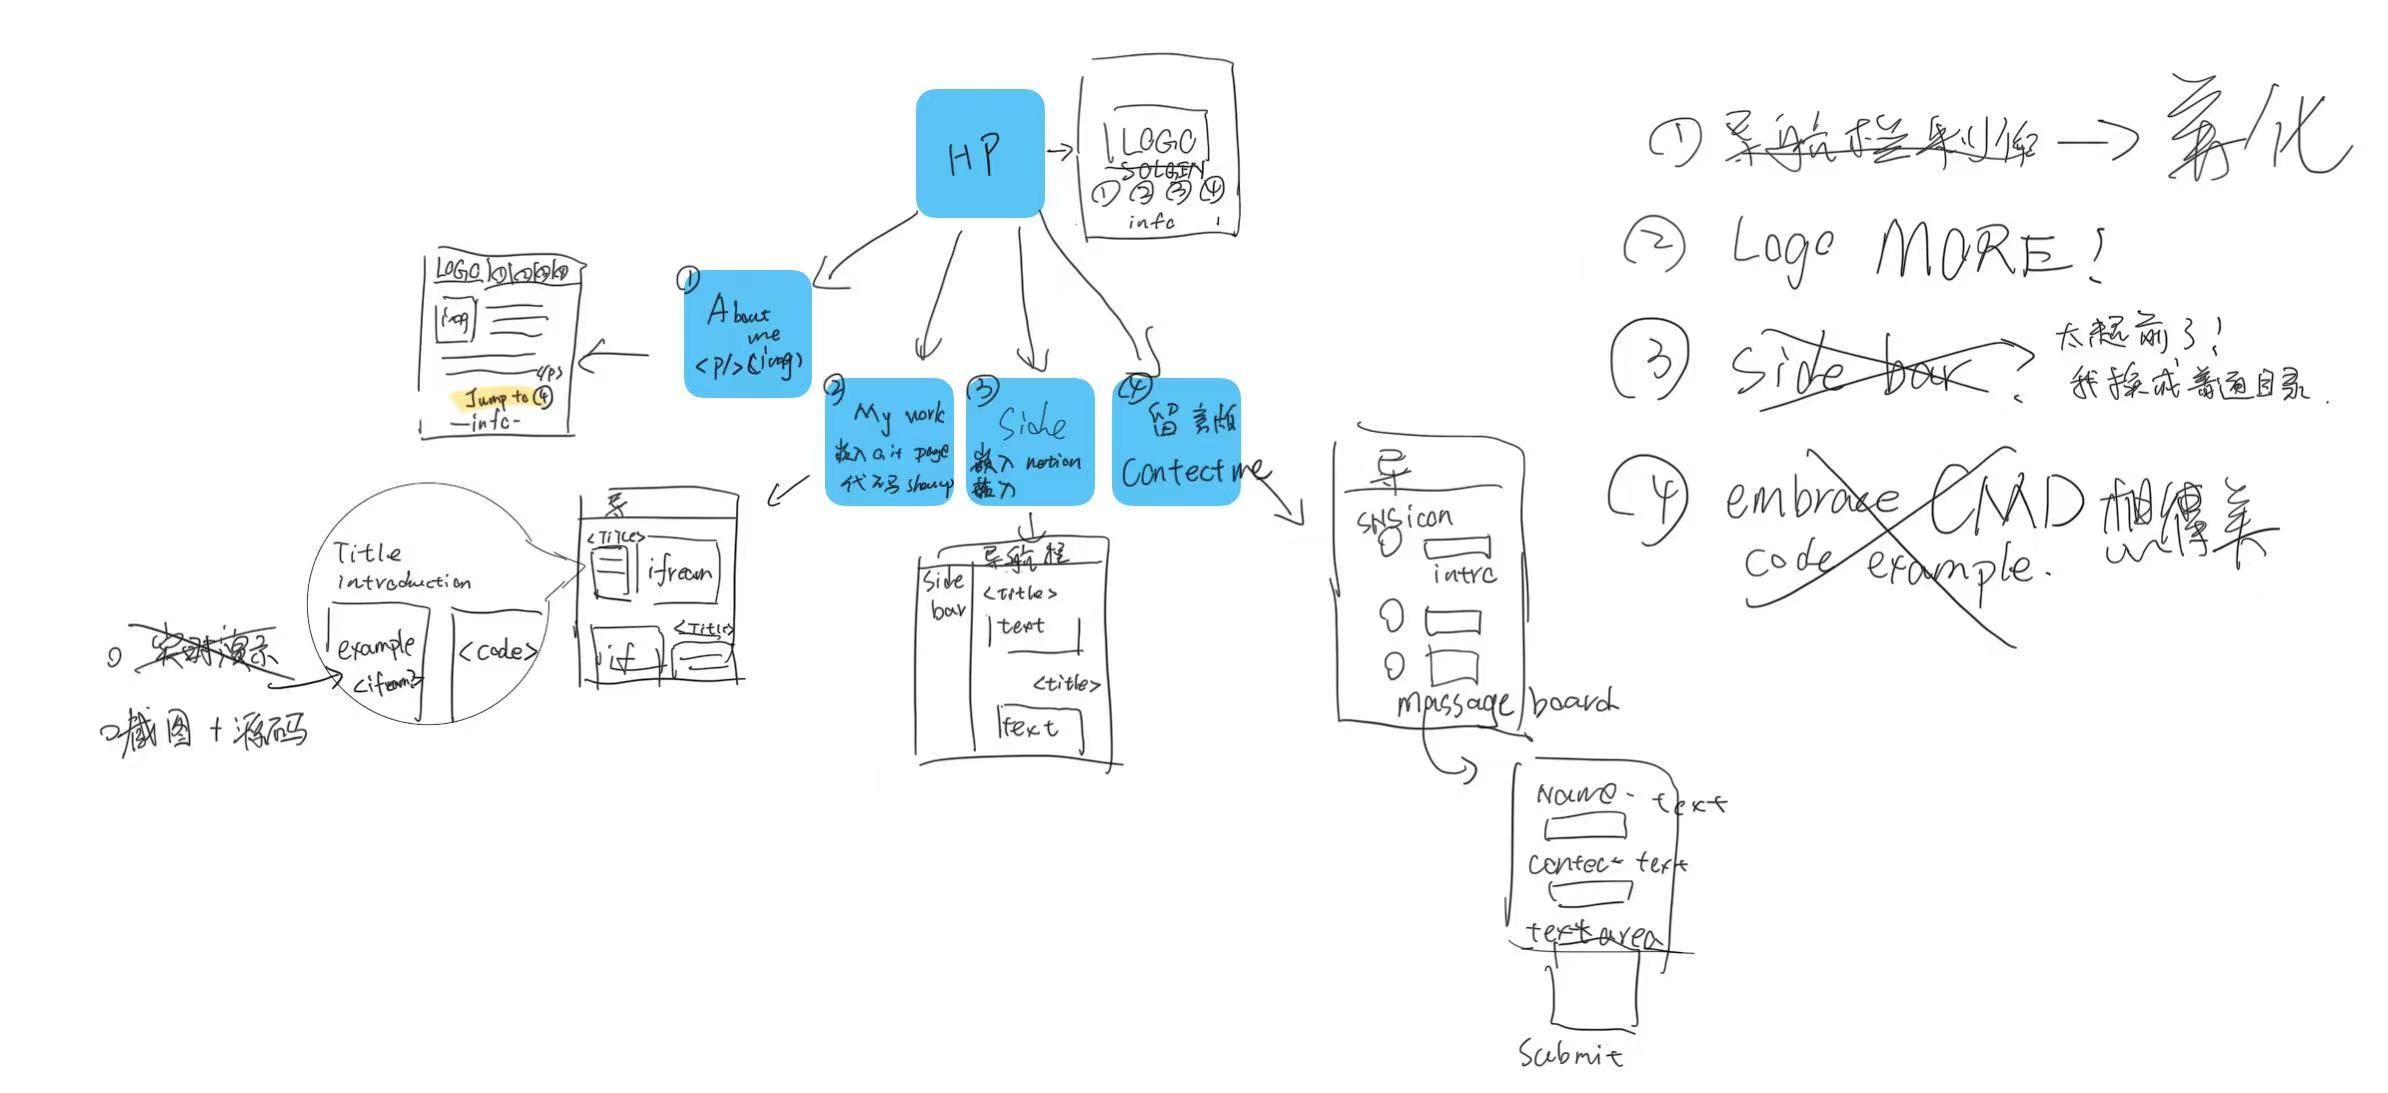 HP
LOGO
SOLGEN
① ② ③ ④
info
①
About
me
<p/>(img)
LOGO ① ② ③ ④
img
</p>
Jump to ④
-info-
②
My work
嵌入 Git page
代码 showup
③
Side
嵌入 notion
嵌入
④
留言版
Contect me
导
<Title>
ifream
if
<Title>
Title
introduction
example
<ifream>
<code>
实时演示
截图 + 源码
导航栏
Side
bar
<title>
text
<title>
text
导
SNS icon
intro
massage board
Name - text
contec- text
text area
Submit
① 导航栏制作 →
② Logo MORE!
③ Side bar?
太超前了!
我换成普通目录.
④ embrace CMD
code example.